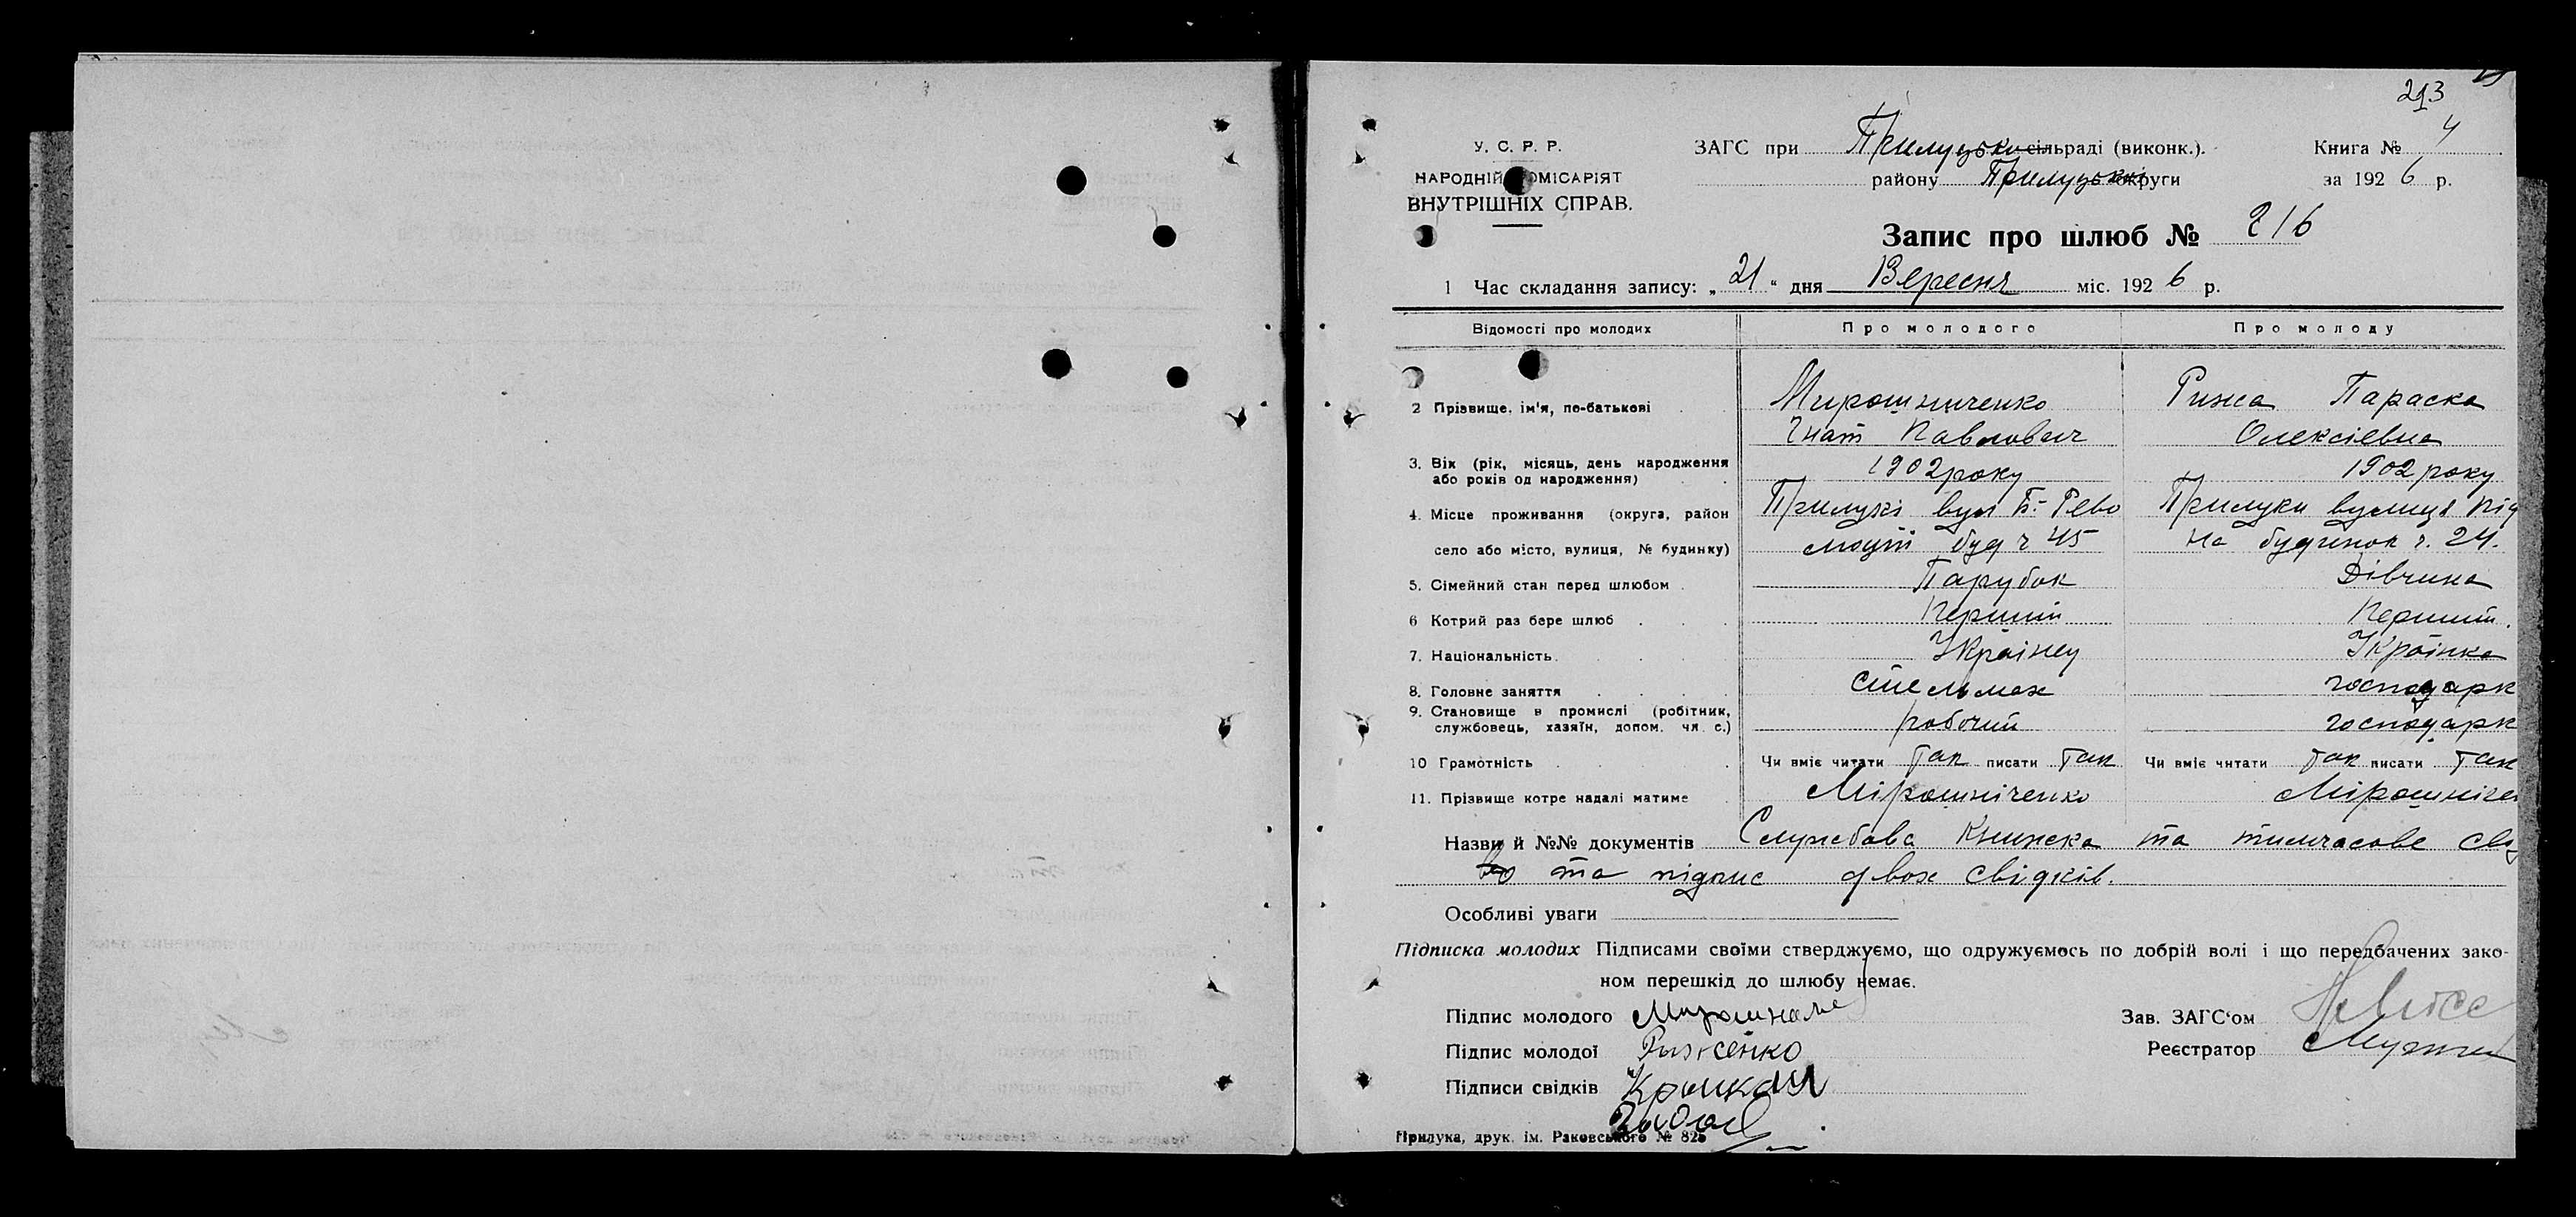 213
У. С. Р. Р.
НАРОДНІЙ КОМІСАРІЯТ
ВНУТРІШНІХ СПРАВ.
ЗАГС при Прилуцько сільраді (виконк.).
району Прилуцьки округи
Книга № 4
за 1926 р.
Запис про шлюб № 216
1 Час складання запису: „21“ дня Вересня міс. 1926 р.
Відомості про молодих Про молодого Про молоду
2 Прізвище, ім'я, по-батькові Мирошниченко Рижа Параска
Гнат Павлович Олексієвна
3. Вік (рік, місяць, день народження 1902 року 1902 року
або років од народження)
4. Місце проживання (округа, район Прилукі вул Б.-Рево Прилуки вулиця Під
село або місто, вулиця, № будинку) люції буд ч 45 на будинок ч. 24.
5. Сімейний стан перед шлюбом Парубок Дівчина
6 Котрий раз бере шлюб Перший Перший.
7. Національність Україец Українка
8. Головне заняття стельмах господарк
9. Становище в промислі (робітник, робочий господарк
службовець, хазяїн, допом. чл. с.)
10 Грамотність Чи вміє читати так писати так Чи вміє читати так писати так
11. Прізвище котре надалі матиме Мірошніченко Мірошніче
Назви й №№ документів Службова Книжка та тимчасове свід
во та підпис двох свідків.
Особливі уваги
Підписка молодих Підписами своїми стверджуємо, що одружуємось по добрій волі і що передбачених зако-
ном перешкід до шлюбу немає.
Підпис молодого
Підпис молодої Риженко
Підписи свідків
Зав. ЗАГС‘ом
Реєстратор
Прилука, друк. ім. Раковського № 825